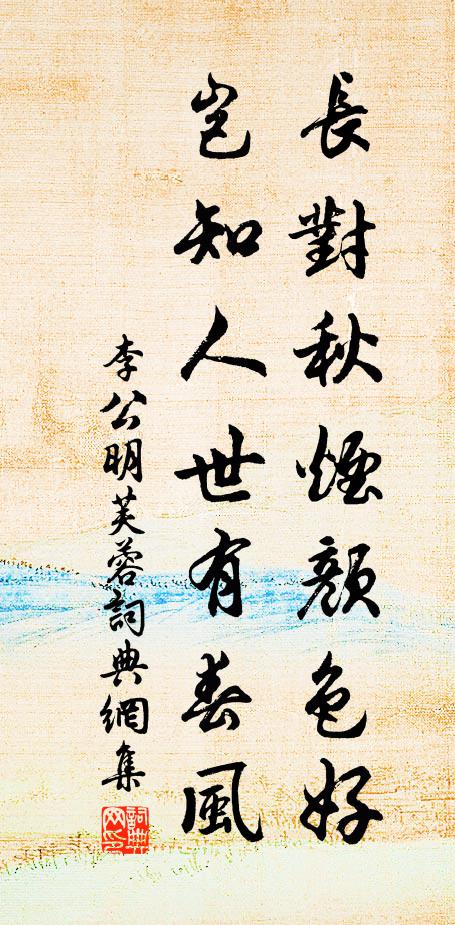 長對秋煙顏色好
豈知人世有春風
李公明芙蓉詞典網集
詞典網印